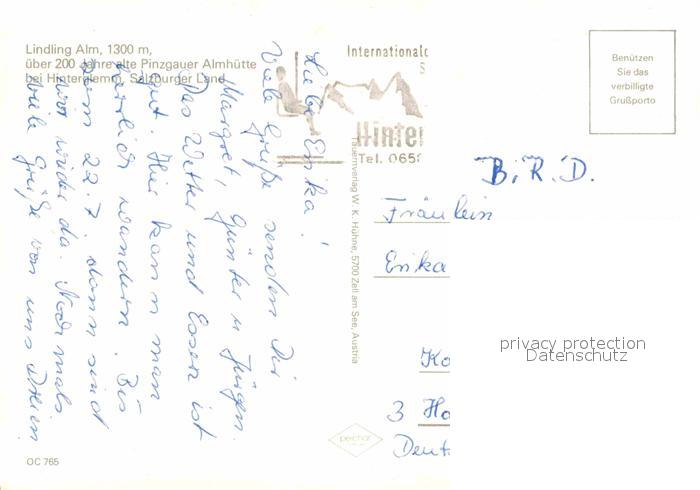 Lindling Alm, 1300 m,
über 200 Jahre alte Pinzgauer Almhütte
bei Hinterglemm, Salzburger Land
Liebe Erika!
Viele Grüße senden Dir
Margret, Günter u Jürgen.
Das Wetter und Essen ist
gut. Hier kann man
herrlich wandern. Bis
zum 22.7. dann sind
wir wieder da. Nochmals
viele Grüße von uns Dreien
Internationale
S
Hinter
Tel. 065
Tauernverlag W. K. Hühne, 5700 Zell am See, Austria
Benützen
Sie das
verbilligte
Grußporto
B.R.D.
Fräulein
Erika
Ko
3 Ha
Deut
privacy protection
Datenschutz
OC 765